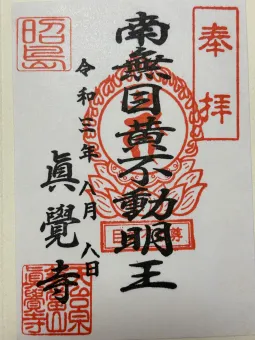 奉拝
南無目黄不動明王
令和三年八月八日
眞覺寺
昭島